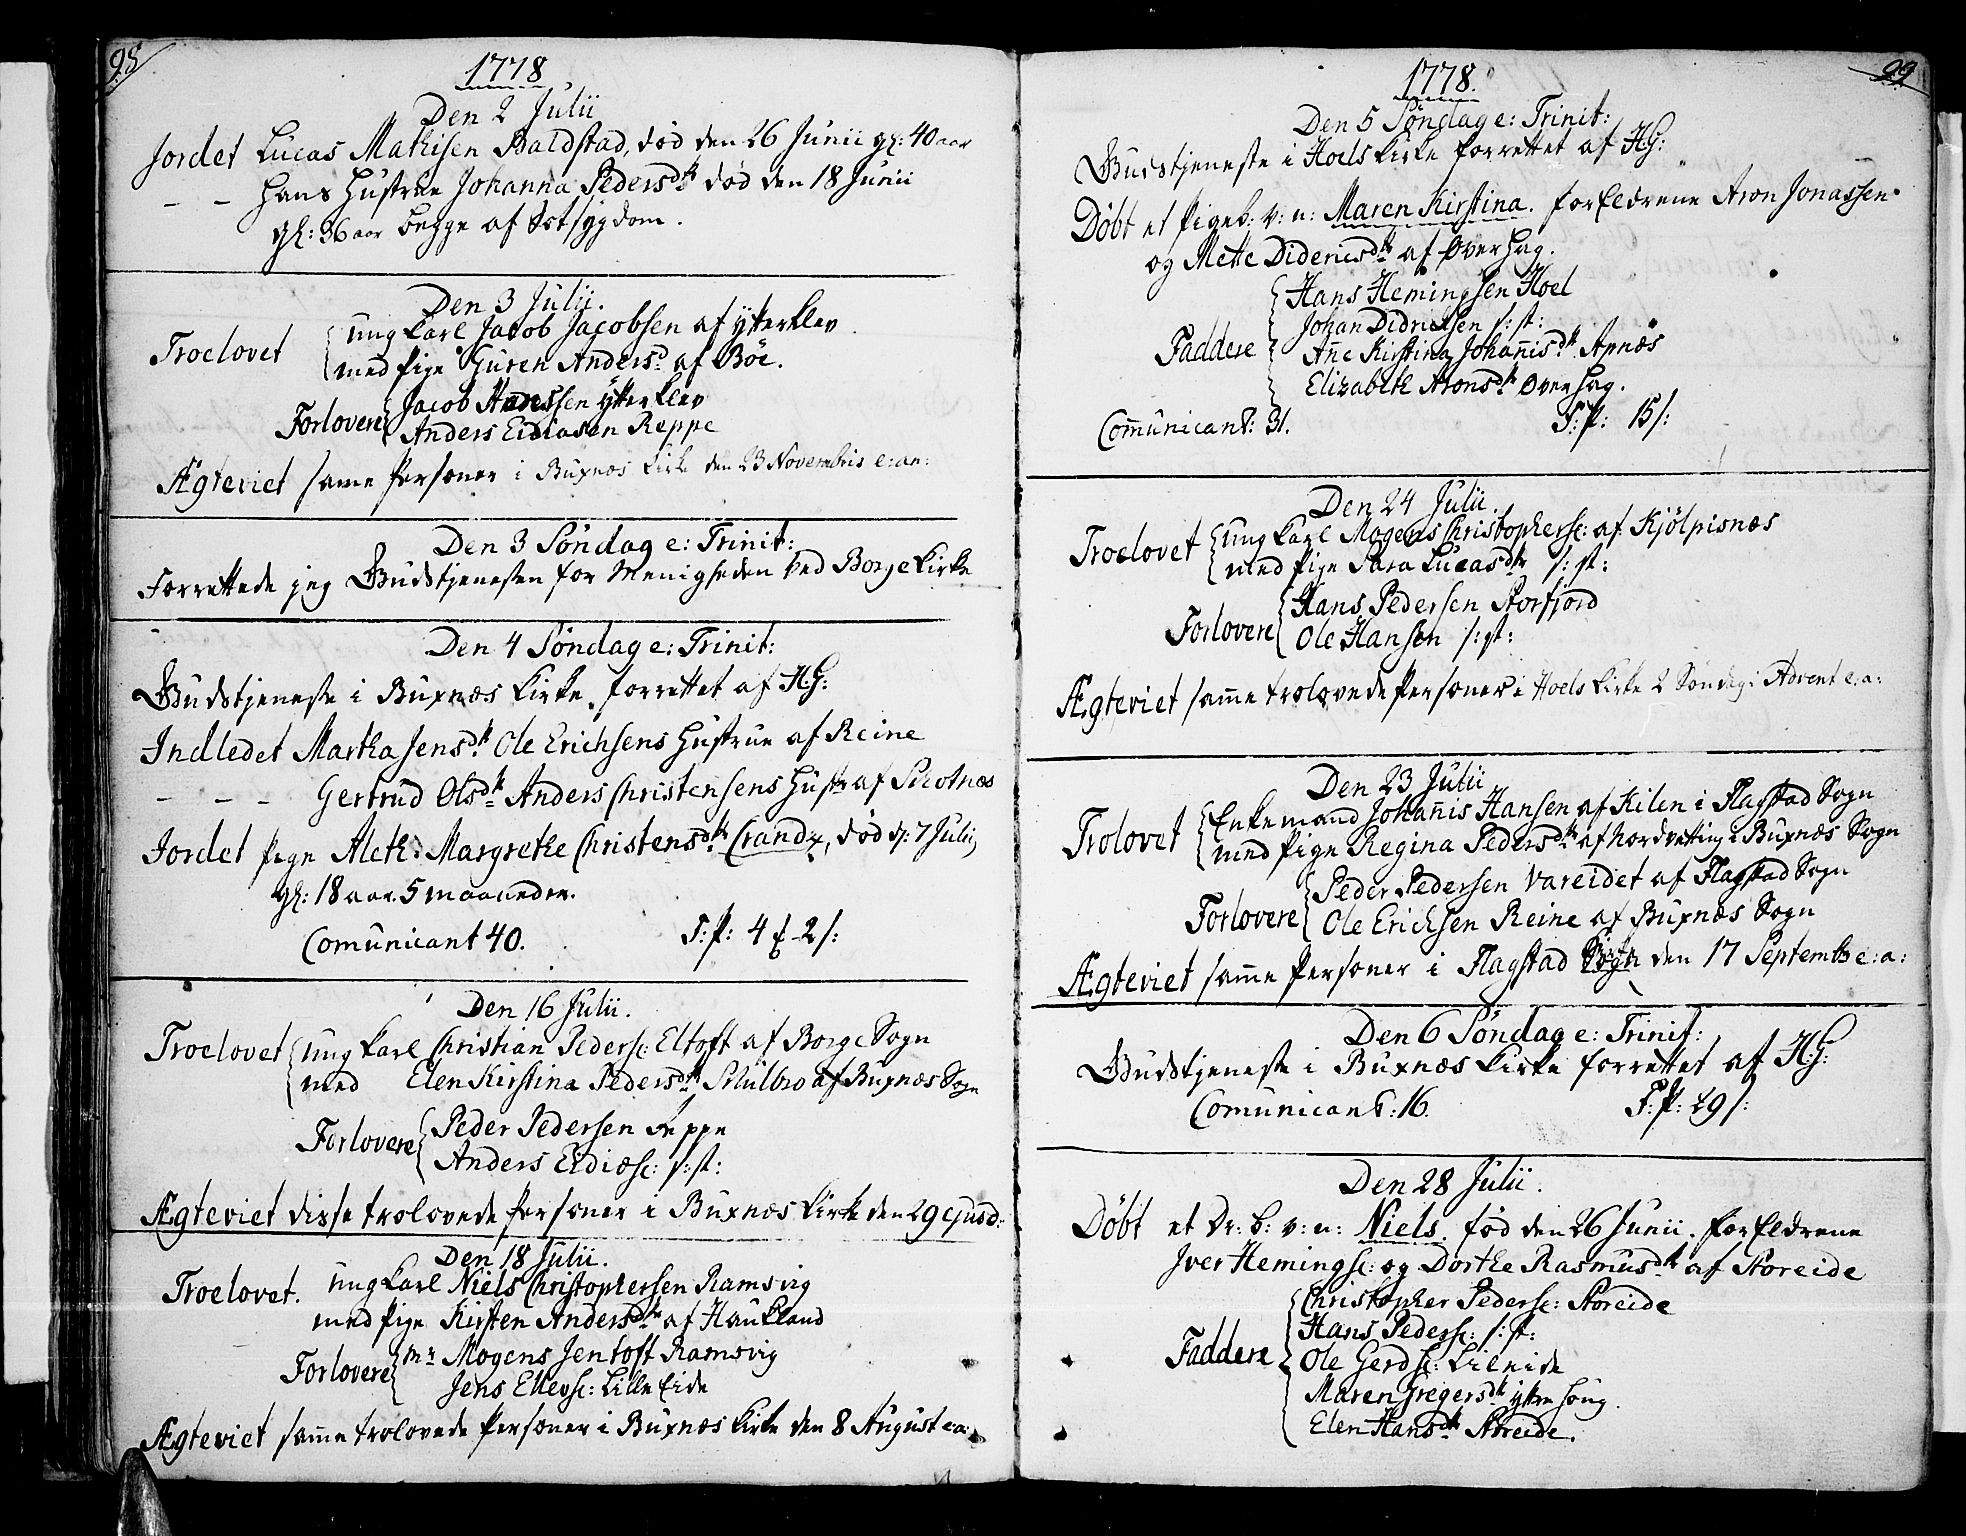 98
1778
Den 2 Julii
Jordet Lucas Mathisen Baldstad, død den 26 Junii gl: 40 aar
- - Hans Hustrue Johanna Pedersdtr død den 18 Junii
gl: 36 aar begge af Sotsygdom.
Den 3 Julii.
Troelovet ung karl Jacob Jacobsen af Ytterklev
med Pige Guren Andersd: af Böe.
Forlovere Jacob Andersen Ytterklev
Anders Ediasen Reppe
Ægteviet same Personer i Buxnæs Kirke den 23 Novembris e: an:
Den 3 Söndag e: Trinit:
Forrettede jeg Gudstjenesten for Menigheden ved Borge Kirke
Den 4 Söndag e: Trinit:
Gudstjeneste i Buxnæs Kirke forrettet af H. G:
Indledet Martha Jensdtr Ole Erichsens Hustrue af Reine
- - - Gertrud Olsdtr Anders Christensens Hustr: af Skotnæs
Jordet Pign Aleth: Margrethe Christensdtr Crandz, død d: 7 Julii
gl: 18 aar 5 maaneder.
Comunicant 40. T: P: 4 f 2 s:
Den 16 Julii.
Troelovet ung karl Christian Peders: Eltoft af Borge Sogn
med Elen Kirstina Pedersdtr Skulbro af Buxnæs Sogn
Forlovere Peder Pedersen Reppe
Anders Ediæs: s: st:
Ægteviet disse trolovede Personer i Buxnæs Kirke den 29 ejusd:
Den 18 Julii.
Troelovet. ung karl Niels Christophersen Ramsvig
med Pige Kirsten Andersdtr af Haukland
Forlovere Mr Mogens Jentoft Ramsvig
Jens Ellevs: Lille Eide
Ægteviet samme trolovede Personer i Buxnæs Kirke den 8 August e: a:
99
1778.
Den 5 Söndag e: Trinit:
Gudstjeneste i Hoels Kirke forrettet af H. G:
Döbt et Pigeb: v: n: Maren Kirstina. forældrene Aron Jonassen
og Mette Didericsdtr af Overhag.
Faddere Hans Hemingsen Hoel
Johan Didricksen s: st:
Añe Kirstina Johañisdtr Apnös
Elizabeth Aronsdtr Overhag.
Com̃unicant: 31. T: P: 15 s:
Den 24 Julii.
Troelovet ung karl Mogens Christophers: af Kjölpisnæs
med Pige Sara Lucasdtr s: st:
Forlovere Hans Pedersen Storfjord
Ole Hansen s: st:
Ægteviet sam̃e trolovede Personer i Hoels Kirke 2 Söndag i Advent e: a:
Den 23 Julii
Trolovet Enkemand Johañis Hansen af Kilen i Flagstad Sogn
med Pige Regina Pedersdtr af Nordvetting i Buxnæs Sogn
Forlovere Peder Pedersen Vareidet af Flagstad Sogn
Ole Erichsen Reine af Buxnæs Sogn
Ægteviet sam̃e Personer i Flagstad Sogn den 17 Septembr: e: a:
Den 6 Söndag e: Trinit:
Gudstjeneste i Buxnæs Kirke forrettet af H: G:
Comunicant: 16. T: P: 29 s:
Den 28 Julii.
Döbt et Dr: b: v: n: Niels. fød den 26 Junii. forældrene
Iver Hemings: og Dorthe Rasmusdtr af Storeide
Faddere Christopher Peders: Storeide
Hans Peders: s: st:
Ole Gerds: Lileide
Maren Gregersdtr Yttre Houg.
Elen Hansdtr Storeide.